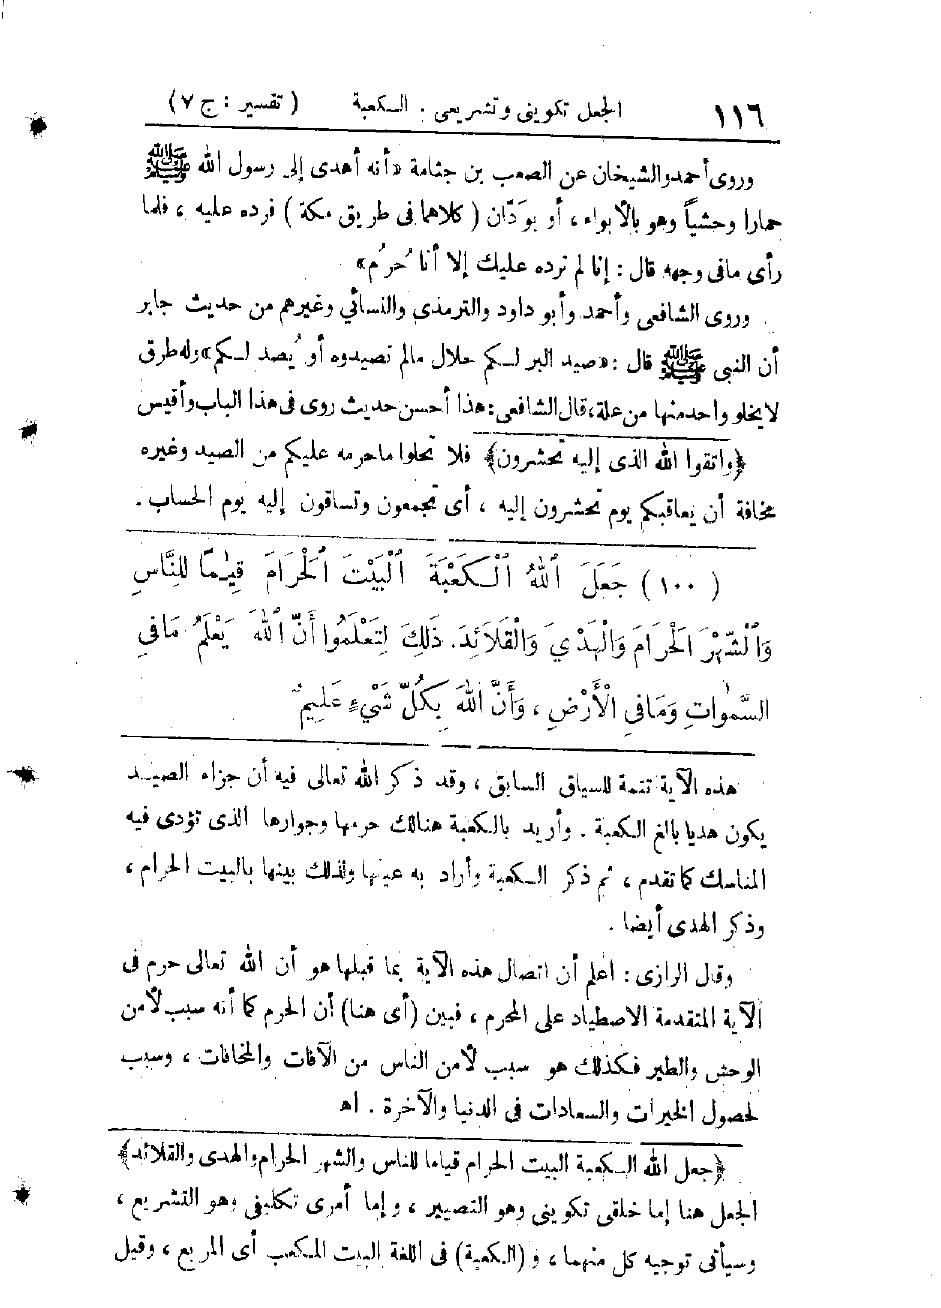 ١١٦ الجعل تكوينى وتشريعى . الكعبة ( تفسير : ج ٧ )
وروى أحمد والشيخان عن الصعب بن جثامة «أنه أهدى إلى رسول الله ﷺ
حمارا وحشياً وهو بالأبواء ، أو بوَدّان ( كلاهما فى طريق مكة ) فرده عليه ، فلما
رأى مافى وجهه قال : إنا لم نرده عليك إلا أنا حُرُم»
وروى الشافعى وأحمد وأبو داود والترمذى والنسائي وغيرهم من حديث جابر
أن النبى ﷺ قال : «صيد البر لكم حلال مالم تصيدوه أو يُصد لكم» وله طرق
لا يخلو واحد منها من علة، قال الشافعى: هذا أحسن حديث روى فى هذا الباب وأقيس
﴿واتقوا الله الذى إليه تحشرون﴾ فلا تحلوا ما حرمه عليكم من الصيد وغيره
مخافة أن يعاقبكم يوم تحشرون إليه ، أى تجمعون وتساقون إليه يوم الحساب .
( ١٠٠ ) جَعَلَ ٱللهُ ٱلْكَعْبَةَ ٱلْبَيْتَ ٱلْحَرَامَ قِيَـٰمًا لِلنَّاسِ
وَٱلْشَّهْرَ الْحَرَامَ وَالْهَدْيَ وَالْقَلَائِدَ. ذَلِكَ لِتَعْلَمُوا أَنَّ ٱللهَ يَعْلَمُ مَافِى
السَّمٰوَاتِ وَمَافِى الْأَرْضِ ، وَأَنَّ اللهَ بِكُلِّ شَيْءٍ عَلِيمٌ
هذه الآية تتمة للسياق السابق ، وقد ذكر الله تعالى فيه أن جزاء الصيد
يكون هديا بالغ الكعبة . وأريد بالكعبة هنالك حرمها وجوارها الذى تؤدى فيه
المناسك كما تقدم ، ثم ذكر الكعبة وأراد به عينها ولذلك بينها بالبيت الحرام ،
وذكر الهدى أيضا .
وقال الرازى : اعلم أن اتصال هذه الآية بما قبلها هو أن الله تعالى حرم فى
الآية المتقدمة الاصطياد على المحرم ، فبين (أى هنا) أن الحرم كما أنه سبب لأمن
الوحش والطير فكذلك هو سبب لأمن الناس من الآفات والمخافات ، وسبب
لحصول الخيرات والسعادات فى الدنيا والآخرة . اه
﴿جعل الله الكعبة البيت الحرام قياما للناس والشهر الحرام والهدى والقلائد﴾
الجعل هنا إما خلقى تكوينى وهو التصيير ، وإما أمرى تكليفى وهو التشريع ،
وسيأتى توجيه كل منهما ، و (الكعبة) فى اللغة البيت المكعب أى المربع ، وقيل